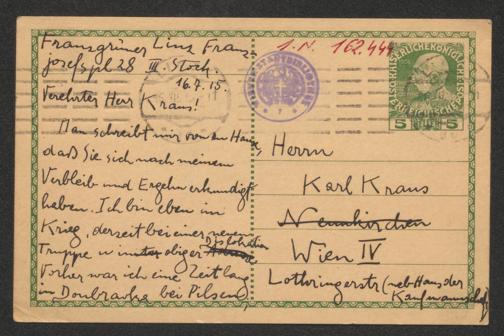 Franzgrüner Linz Franz-
josefspl 28 III. Stock.
16.7.15.
Verehrter Herr Kraus!
Man schreibt mir von zu Haus,
daß Sie sich nach meinem
Verbleib und Ergehn erkundigt
haben. Ich bin eben im
Krieg, derzeit bei einer neuen
Truppe u unter obiger
Vorher war ich eine Zeit lang
in Doubravka bei Pilsen,
I.N. 162.444
5 5
Herrn
Karl Kraus
Neunkirchen
Wien IV
Lothringerstr (neb. Haus der
Kaufmannschaft